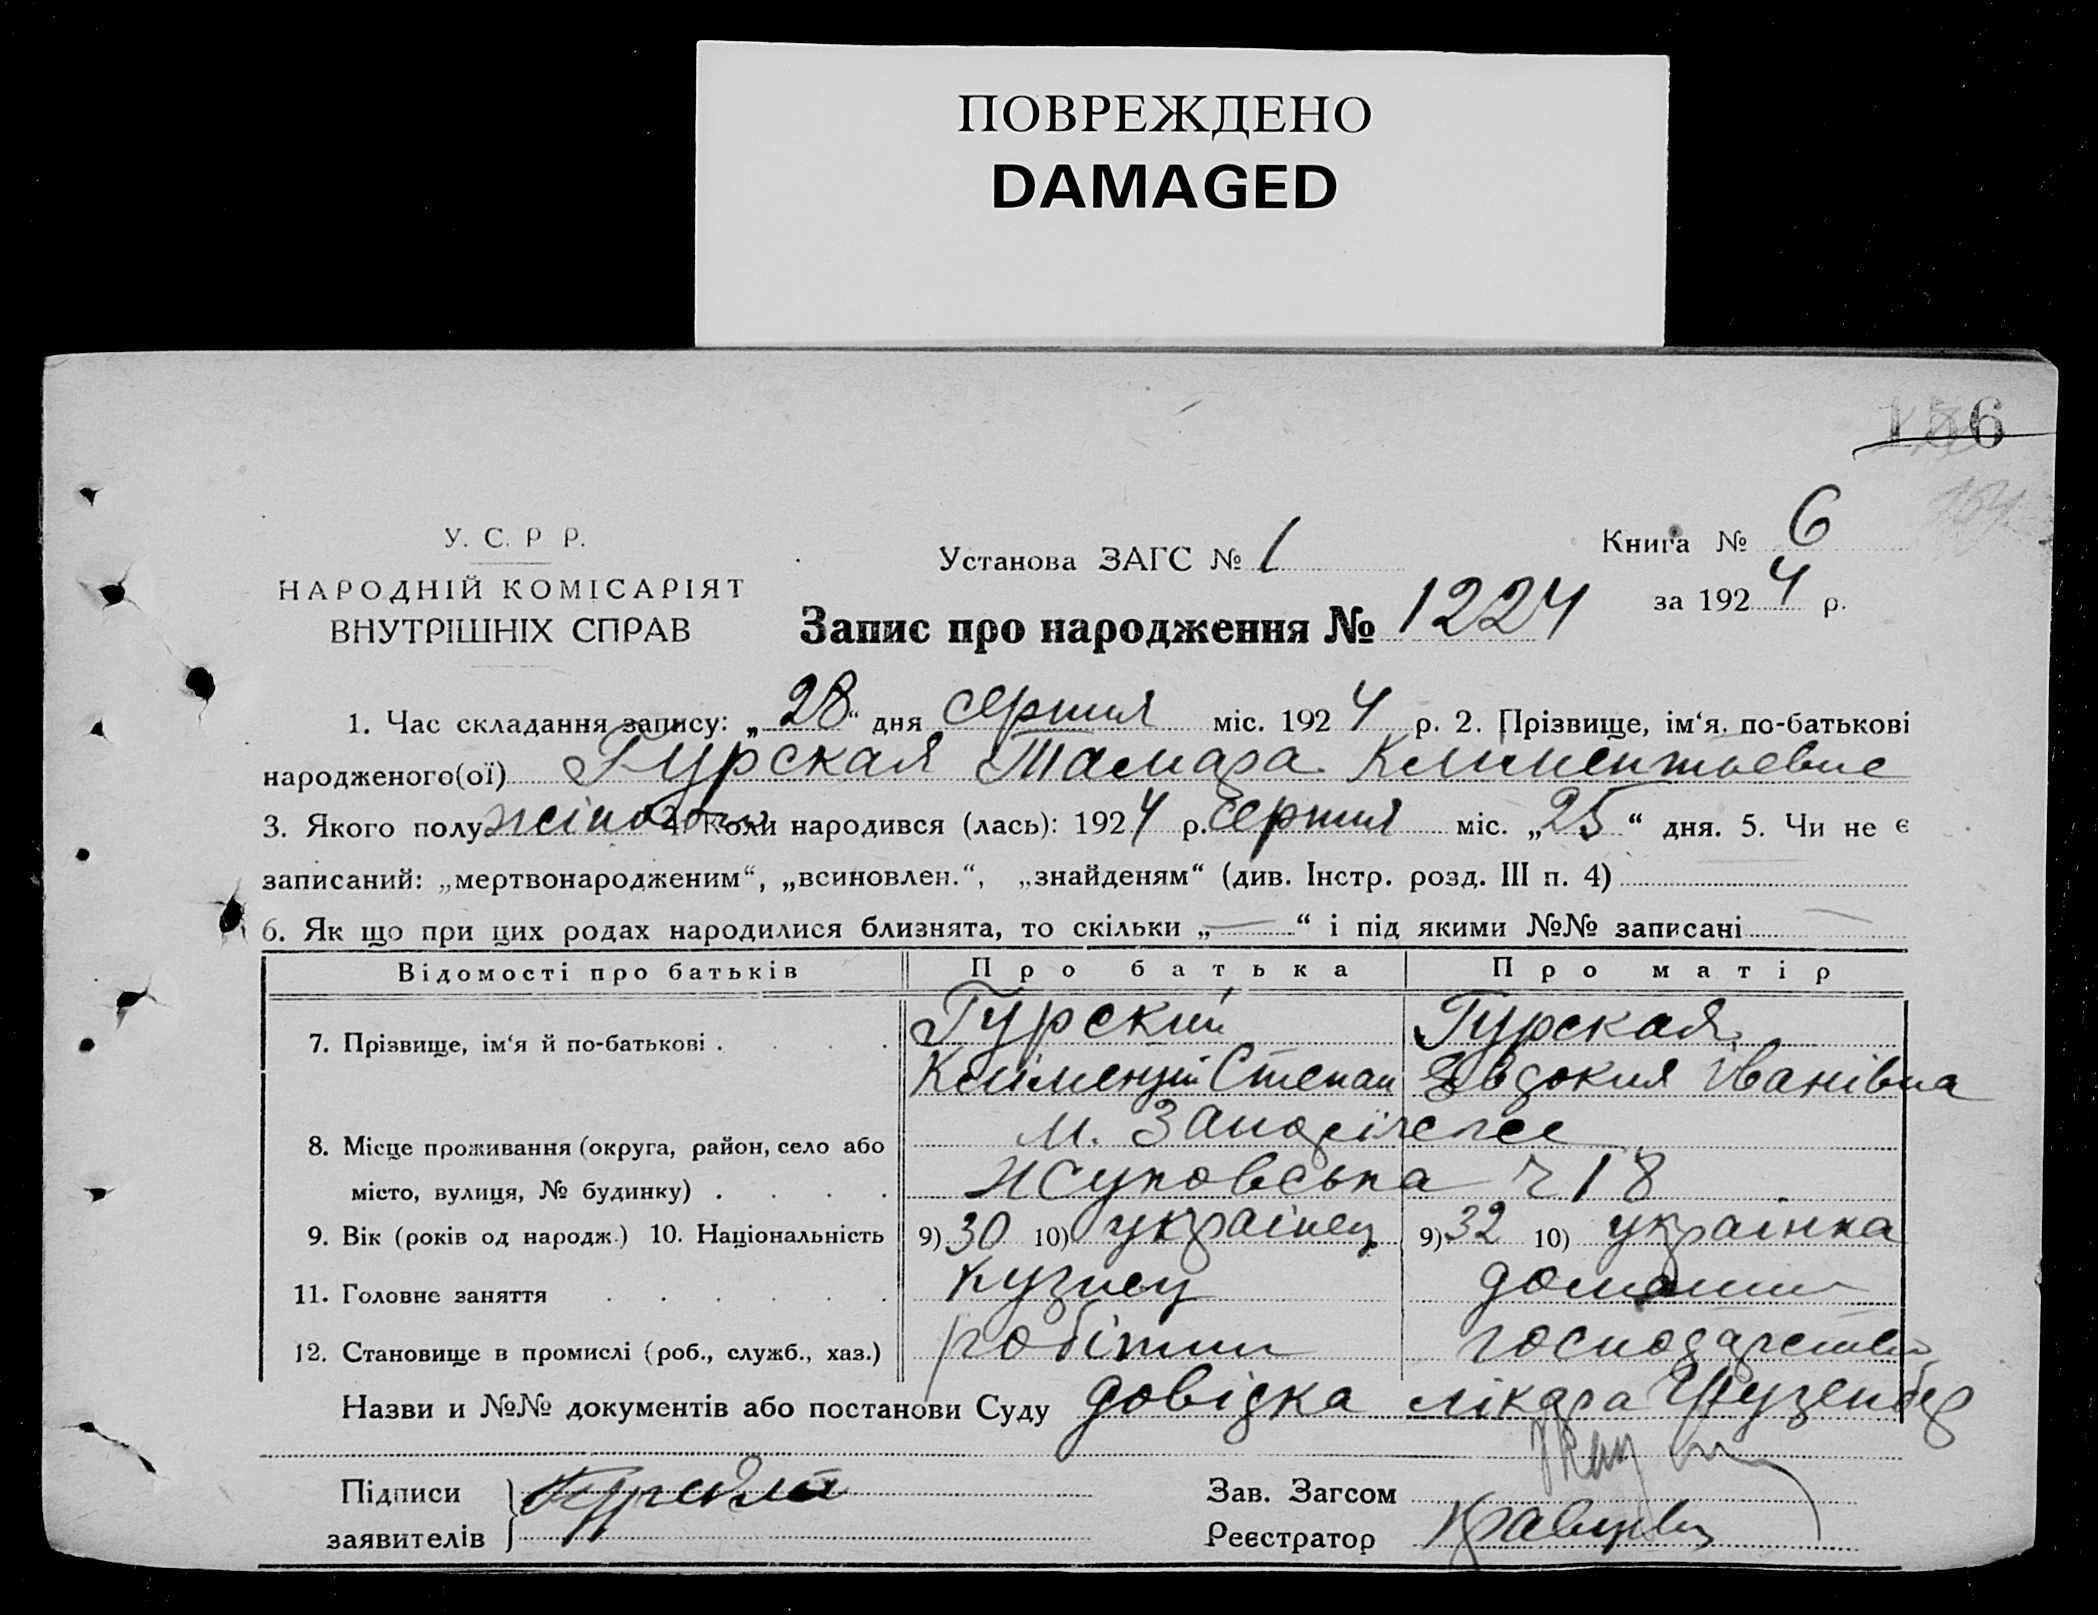 ПОВРЕЖДЕНО
DAMAGED
6
У. С. Р Р.
НАРОДНІЙ КОМІСАРІЯТ
ВНУТРІШНІХ СПРАВ
Установа ЗАГС № 1
Книга № 6
за 1924 р.
Запис про народження № 1224
1. Час складання запису: „28“ дня серпня міс. 1924 р. 2. Прізвище, ім‘я. по-батькові
народженого(ої) Гурская Тамара Климентьевне
3. Якого полу жіночого 4. Коли народився (лась): 1924 р. серпня міс. „25“ дня. 5. Чи не є
записаний: „мертвонародженим“, „всиновлен.“, „знайденям“ (див. Інстр. розд. III п. 4)
6. Як що при цих родах народилися близнята, то скільки „—“ і під якими №№ записані —
Відомості про батьків Про батька Про матір
7. Прізвище, ім‘я й по-батькові . . . . Гурский Гурская
Климентий Степан Евдокия Іванівна
8. Місце проживання (округа, район, село або м.
місто, вулиця, № будинку) . . . . ч 18
9. Вік (років од народж.) 10. Національність 9) 30 10) українец 9) 32 10) українка
11. Головне заняття . . . . . . Кузнец домашне
12. Становище в промислі (роб., служб., хаз.) робітник господарство
Назви и №№ документів або постанови Суду довідка лікара
Підписи
заявителів
Зав. Загсом
Реєстратор